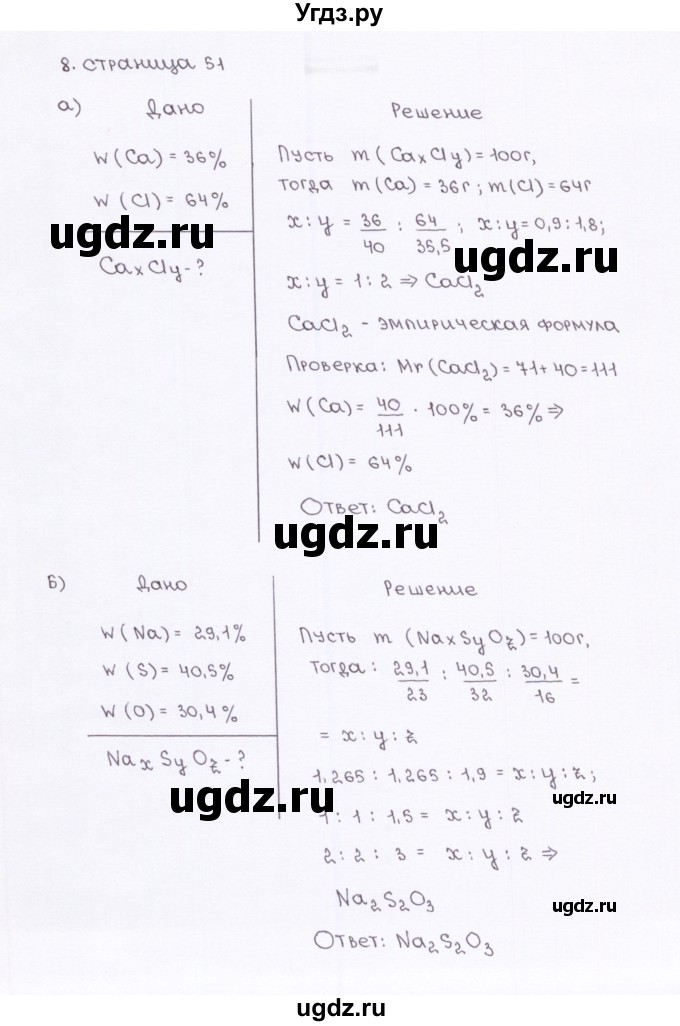 Угдз.ру
8. страница 51
а) Дано Решение
W(Ca) = 36% Пусть m (CaxCly) = 100г,
W (Cl) = 64% тогда m(Ca) = 36г ; m(Cl) = 64г
x : y = 36/40 : 64/35,5 ; x : y = 0,9 : 1,8;
ugdz.ru
ugdz.ru
CaxCly - ?
x : y = 1 : 2 ⇒ CaCl2
CaCl2 - эмпирическая формула
Проверка: Mr (CaCl2) = 71 + 40 = 111
W(Ca) = 40/111 · 100% = 36% ⇒
W(Cl) = 64%
Ответ: CaCl2
ugdz.ru
Б) Дано Решение
W (Na) = 29,1% Пусть m (NaxSyOz) = 100г,
W (S) = 40,5% Тогда : 29,1/23 : 40,5/32 : 30,4/16 =
W (O) = 30,4%
= x : y : z
NaxSyOz - ?
1,265 : 1,265 : 1,9 = x : y : z ;
ugdz.ru
ugdz.ru
1 : 1 : 1,5 = x : y : z
2 : 2 : 3 = x : y : z ⇒
Na2S2O3
ugdz.ru
Ответ: Na2S2O3
ugdz.ru